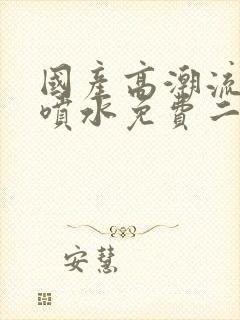 國產高潮流
噴水免費二
安慧